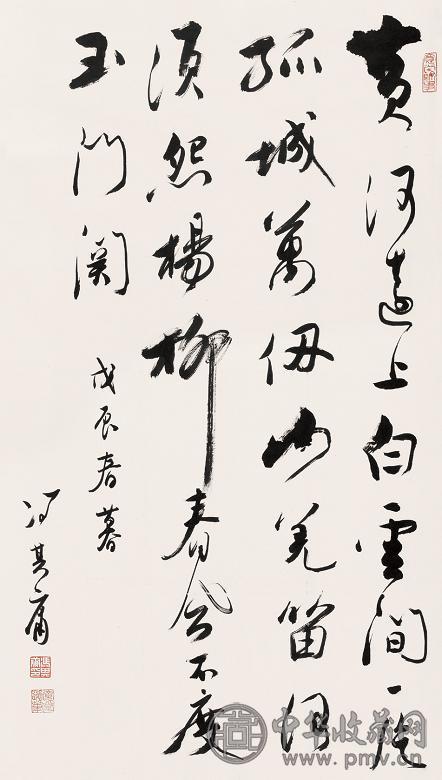 黄河遠上白雲间一片
孤城萬仞山羌笛何
须怨楊柳春风不度
玉门関
戊辰春暮
冯其庸
中华收藏网
www.pmv.cn